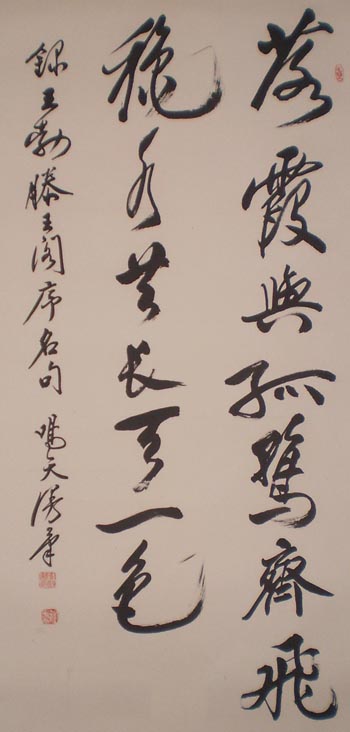 落霞與孤鶩齊飛
秋水共長天一色
錄王勃滕王阁序名句